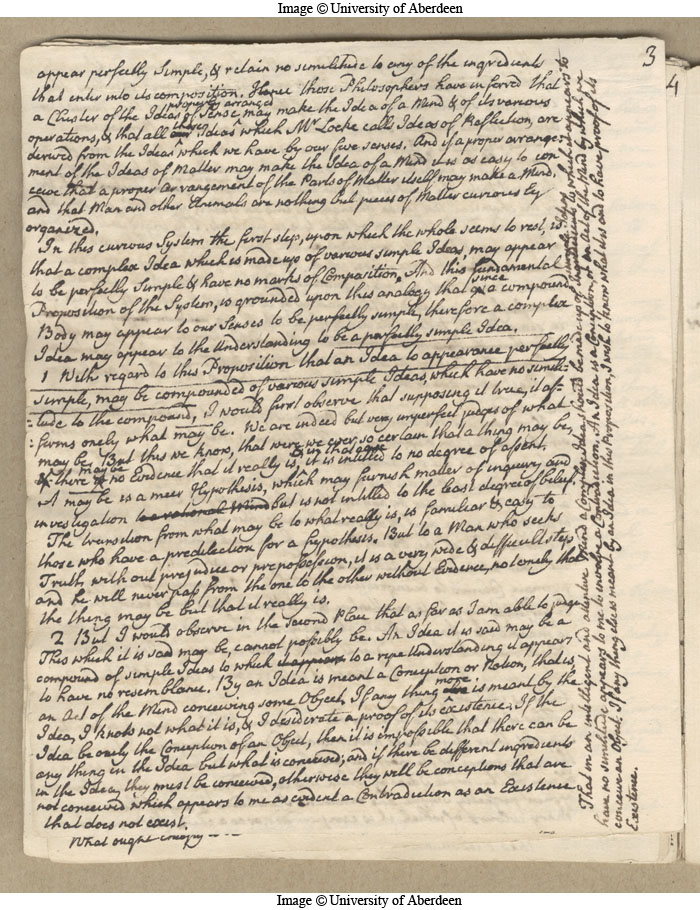 Image © University of Aberdeen
3
4
appear perfectly Simple, & retain no similitude to any of the ingredients
that enter into its composition. Hence those Philosophers have inferred that
a Cluster of the Ideas of Sense properly arranged may make the Idea of a Mind & of its various
operations, & that all those Ideas which Mr Locke calls Ideas of Reflection, are
derived from the Ideas which we have by our five senses. And if a proper arrange-
ment of the Ideas of Matter may make the Idea of a Mind it is as easy to con
ceive that a proper Arrangement of the Parts of Matter itself may make a Mind,
and that Man and other Animals are nothing but pieces of Matter curiously
organized.
In this curious System the first step, upon which the whole seems to rest, is
that a complex Idea which is made up of various simple Ideas, may appear
to be perfectly Simple & have no marks of Composition. And this fundamental
Proposition of the System, is grounded upon this analogy that since a compound
Body may appear to our Senses to be perfectly simple, therefore a complex
Idea may appear to the Understanding to be a perfectly simple Idea.
1 With regard to this Proposition that an Idea to appearance perfectly
simple, may be compounded of various simple Ideas, which have no simili-
-tude to the compound, I would first observe that supposing it true, it af-
:firms onely what may be. We are indeed but very imperfect judges of what
may be. But this we know, that were we ever so certain that a thing may be,
if there may be no Evidence that it really is, it is intitled to no degree of assent.
A may be is a meer Hypothesis, which may furnish matter of inquiry and
investigation to a rational Mind but is not intitled to the least degree of belief.
The transition from what may be to what really is, is familiar & easy to
those who have a predilection for a hypothesis. But to a Man who seeks
Truth, with out prejudice or prepossession, it is a very wide & difficult step
and he will never pass from the one to the other without Evidence, not onely that
the thing may be but that it really is.
2 But I would observe in the Second Place that as far as I am able to judge
This which it is said may be, cannot possibly be. An Idea it is said may be a
compound of simple Ideas to which it appears to a ripe Understanding it appears
to have no resemblance. By an Idea is meant a Conception or Notion, that is,
an Act of the Mind conceiving some Object. If any thing more is meant by the
Idea, I know not what it is, & I desiderate a proof of its existence. If the
Idea be onely the Conception of an Object, then it is impossible that there can be
any thing in the Idea but what is conceived; and if there be different ingredients
in the Idea, they must be conceived, otherwise they will be conceptions that are
not conceived which appears to me as evident a Contradiction as an Existence
that does not exist.
What ought
That in an intelligent and attentive Mind a complex Idea should be made up of simple Ideas, to which it appears to
have no similitude, appears to me to involve a Contradiction. An Idea is a Conception, or an Act of the Mind by which we
conceive an Object. If any thing else is meant by an Idea in this Proposition, I wish to know what it is and to have proof of its
Existence.
Image © University of Aberdeen